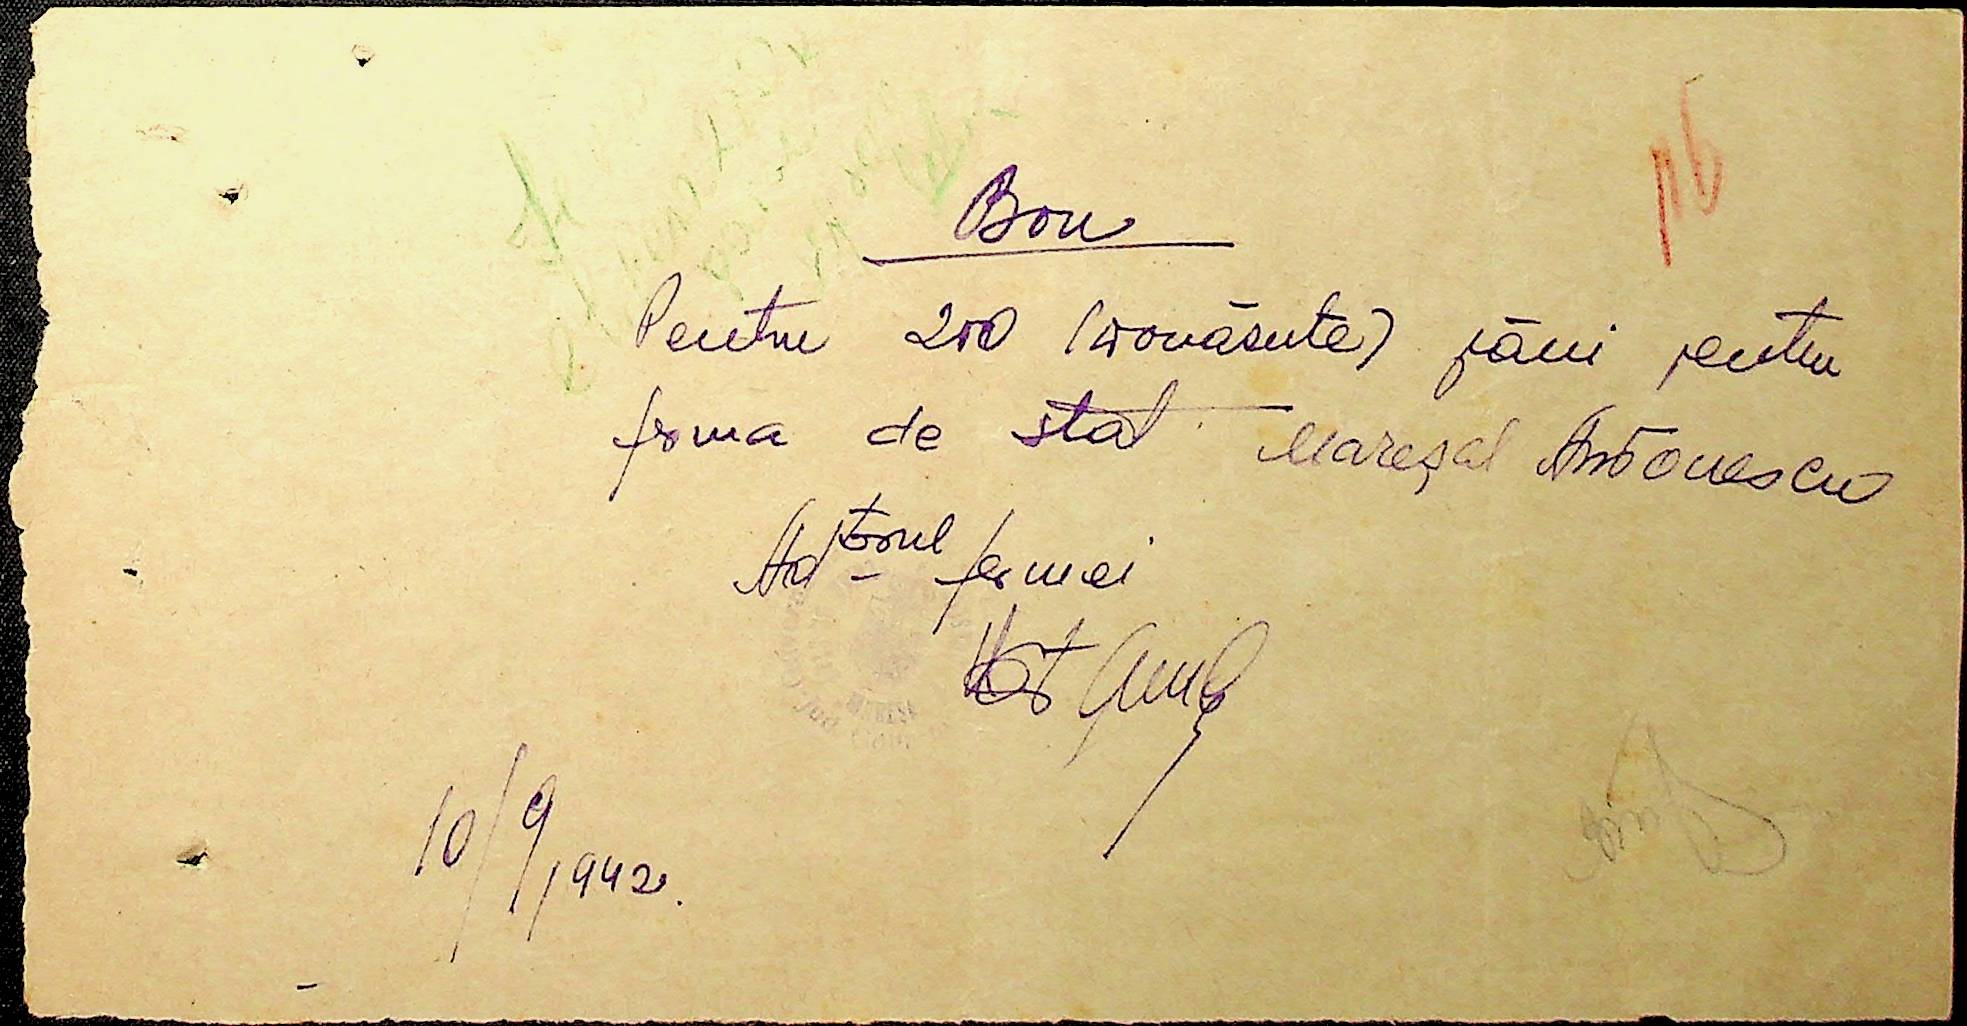 Bon
Pentru 200 (douăsute) pâni pentru
ferma de stat Mareșal Antonescu
Ad-torul fermei
10/9/1942.